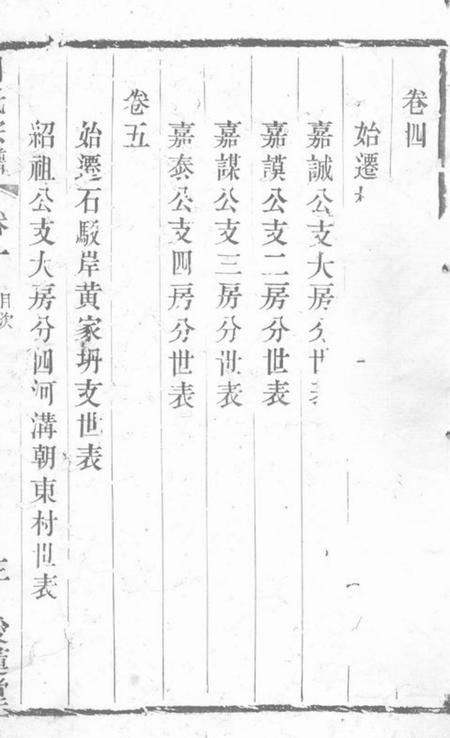 卷四
始遷
嘉誠公支大房分世表
嘉謨公支二房分世表
嘉謀公支三房分世表
嘉泰公支四房分世表
卷五
始遷石駁岸黄家坍支世表
紹祖公支大房分四河溝朝東村世表
目次